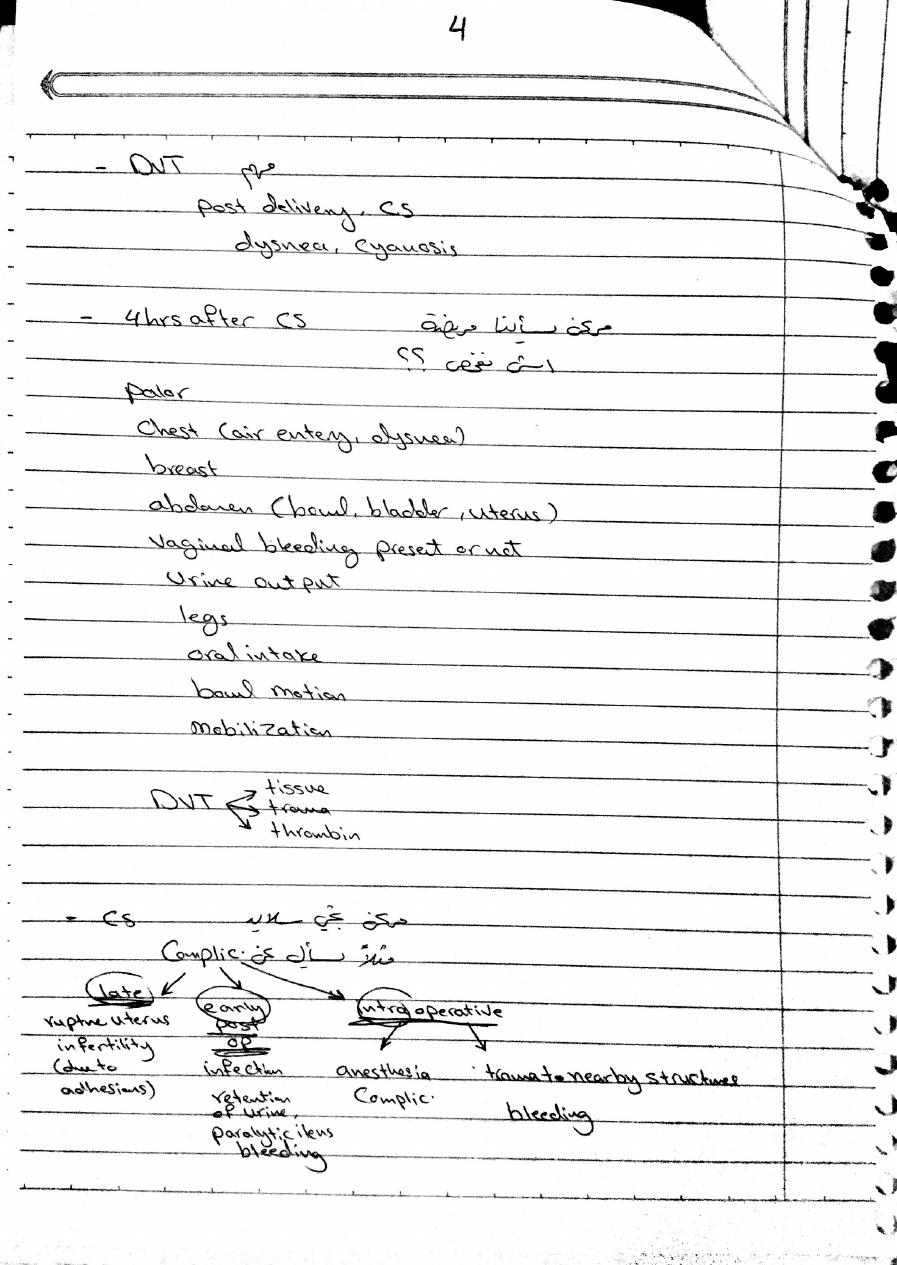 4
- DVT مهم
post delivery, CS
dysnea, cyanosis
- 4hrs after CS ممكن يسألنا مريضة
اش نفحص ؟؟
palor
Chest (air entery, dysnea)
breast
abdomen (bowl, bladder, uterus)
Vaginal bleeding present or not
Urine output
legs
oral intake
bowl motion
mobilization
DVT
tissue
trauma
thrombin
- CS ممكن يجي
Complic. مثلاً يسأل عن
late
rupture uterus
infertility
(due to
adhesions)
early
post
op
infection
retention
of urine,
paralytic ileus
bleeding
intra operative
anesthesia
Complic.
trauma to nearby structures
bleeding